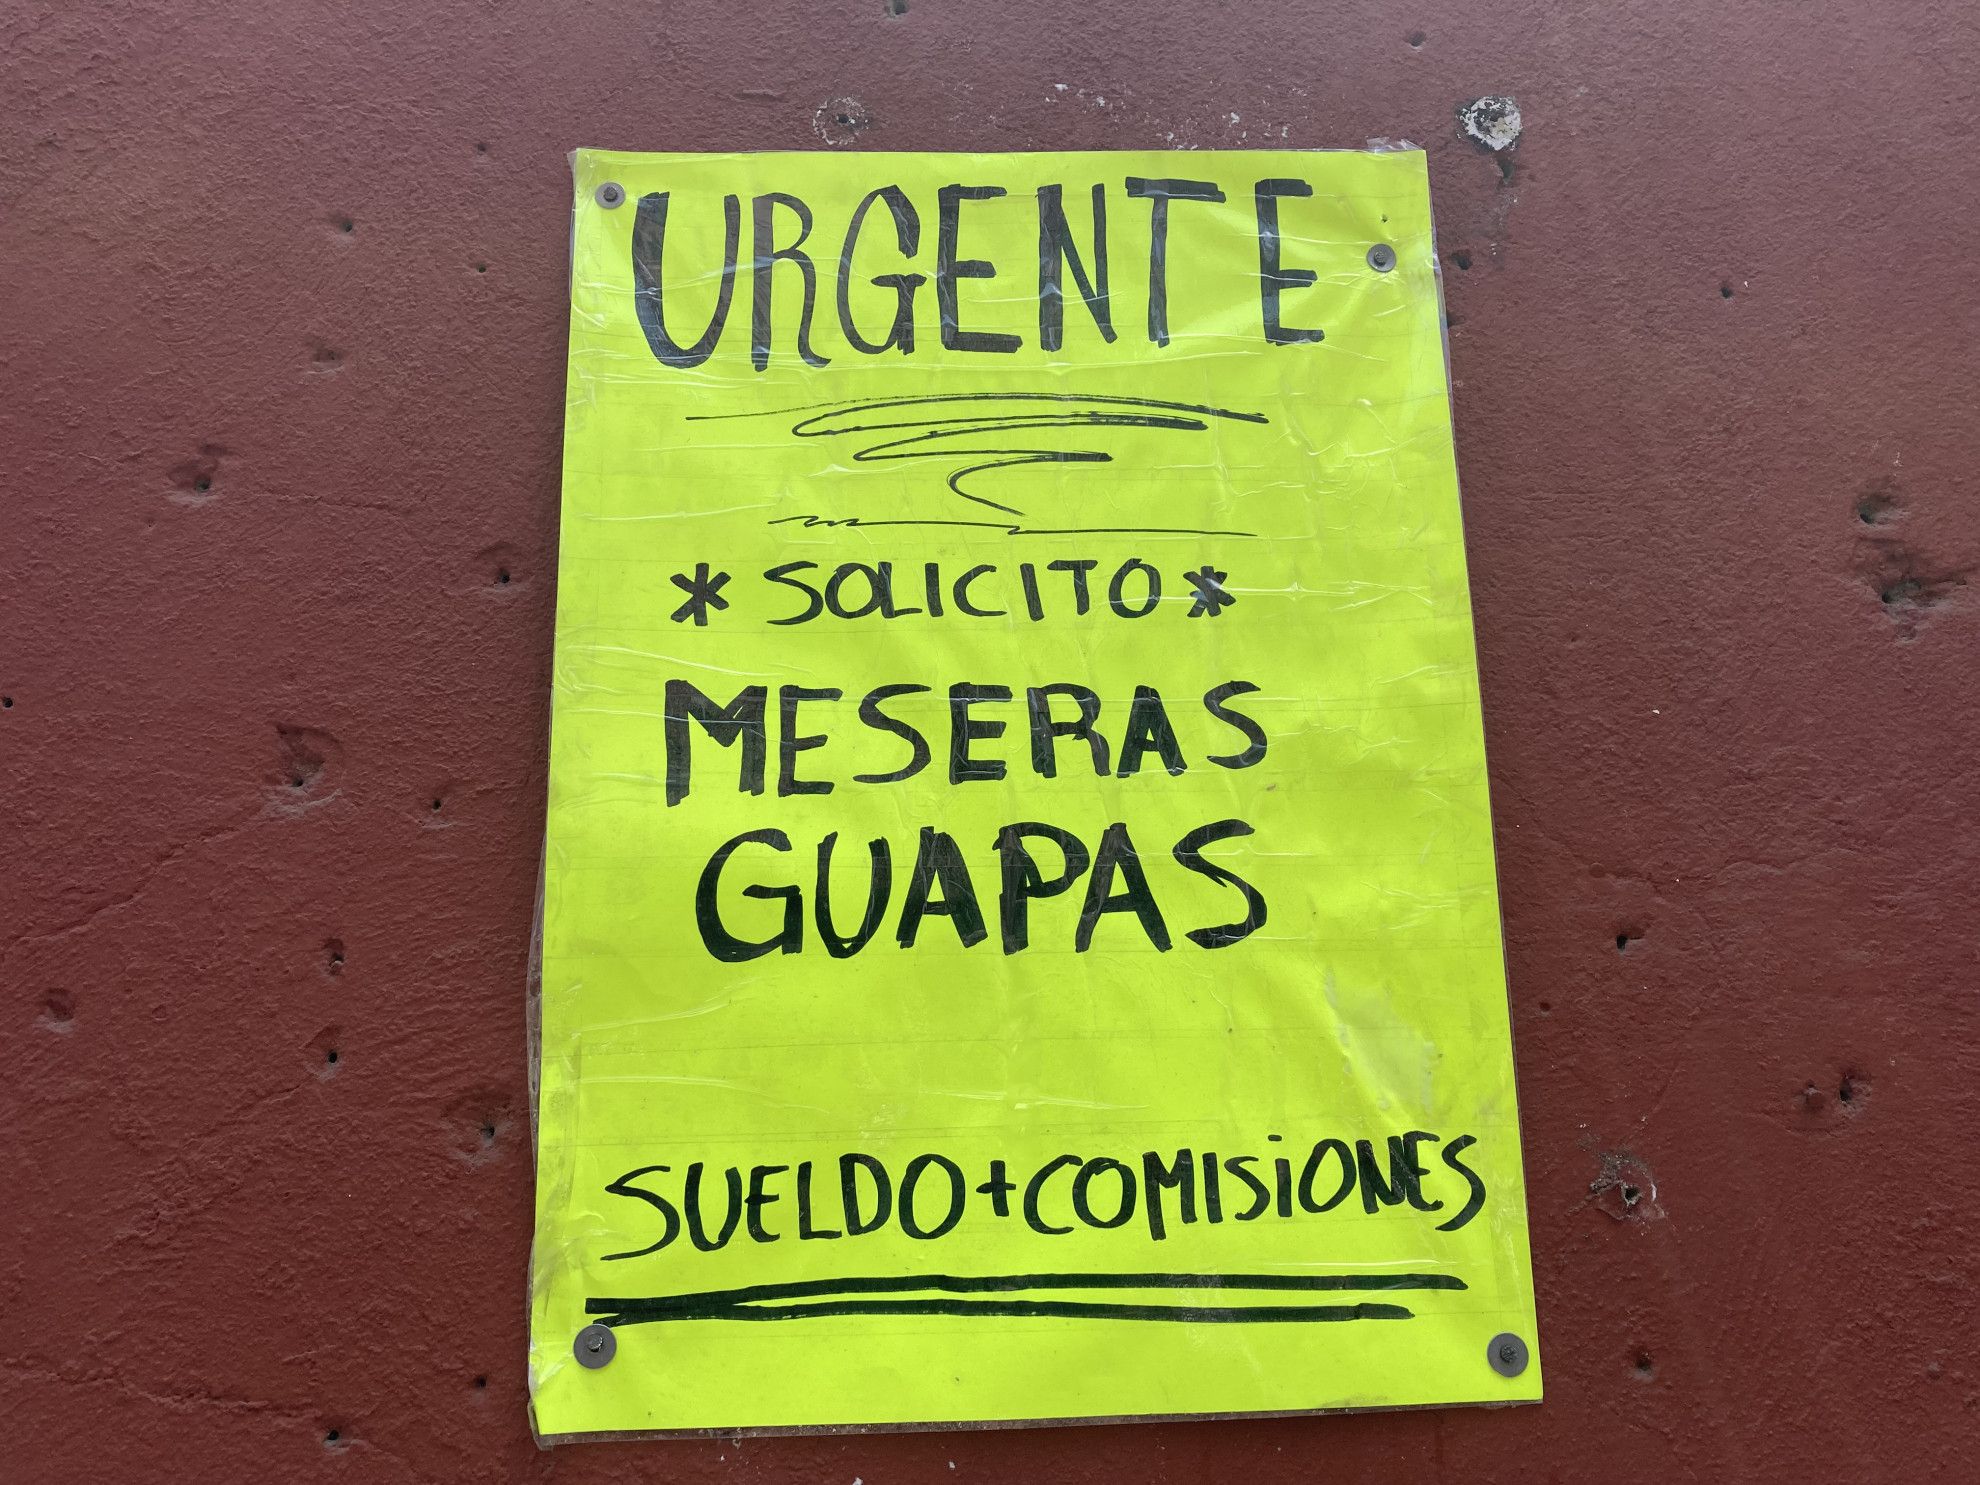 URGENTE
* SOLICITO *
MESERAS
GUAPAS
SUELDO+COMISIONES